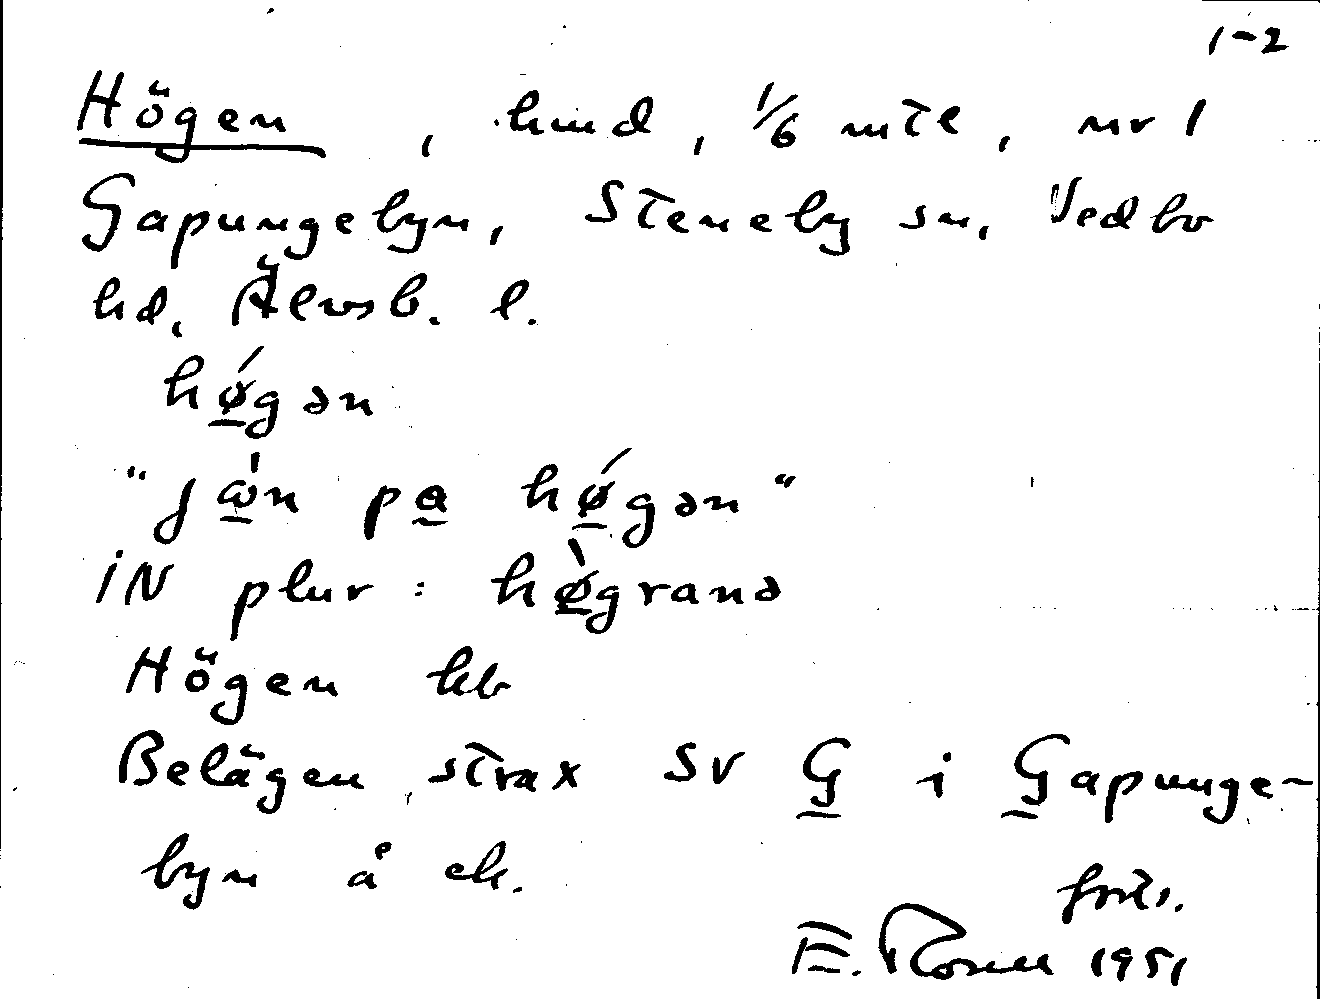 1-2
Högen, hmd, 1/6 mtl, nr 1
Gapungebyn, Steneby sn, Vedbo
hd, Älvsb. l.
hǿ̠gən
"jω̠̍n pa̠ hǿ̠gən"
iN plur: hø̠̀granə
Högen kb
Belägen strax SV G̲ i G̲apunge-
byn å ek.
forts.
E. Rosell 1951